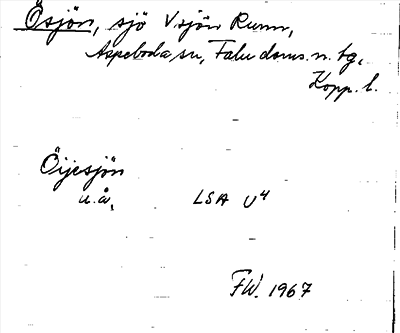 Ösjön, sjö V sjön Runn,
Aspeboda sn, Falu doms. n. tg,
Kopp. l.
Öijesjön
u.å. LSA U4
FW. 1967